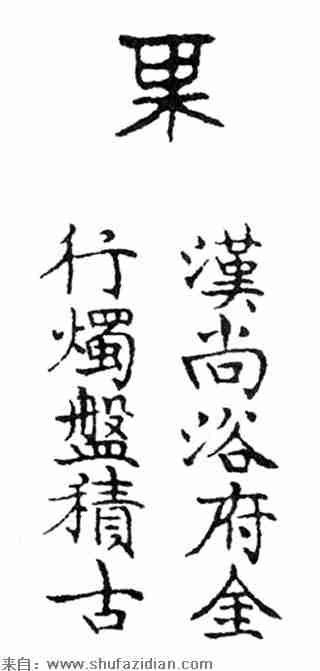 漢尚浴府金
行燭盤積古
来自：www.shufazidian.com